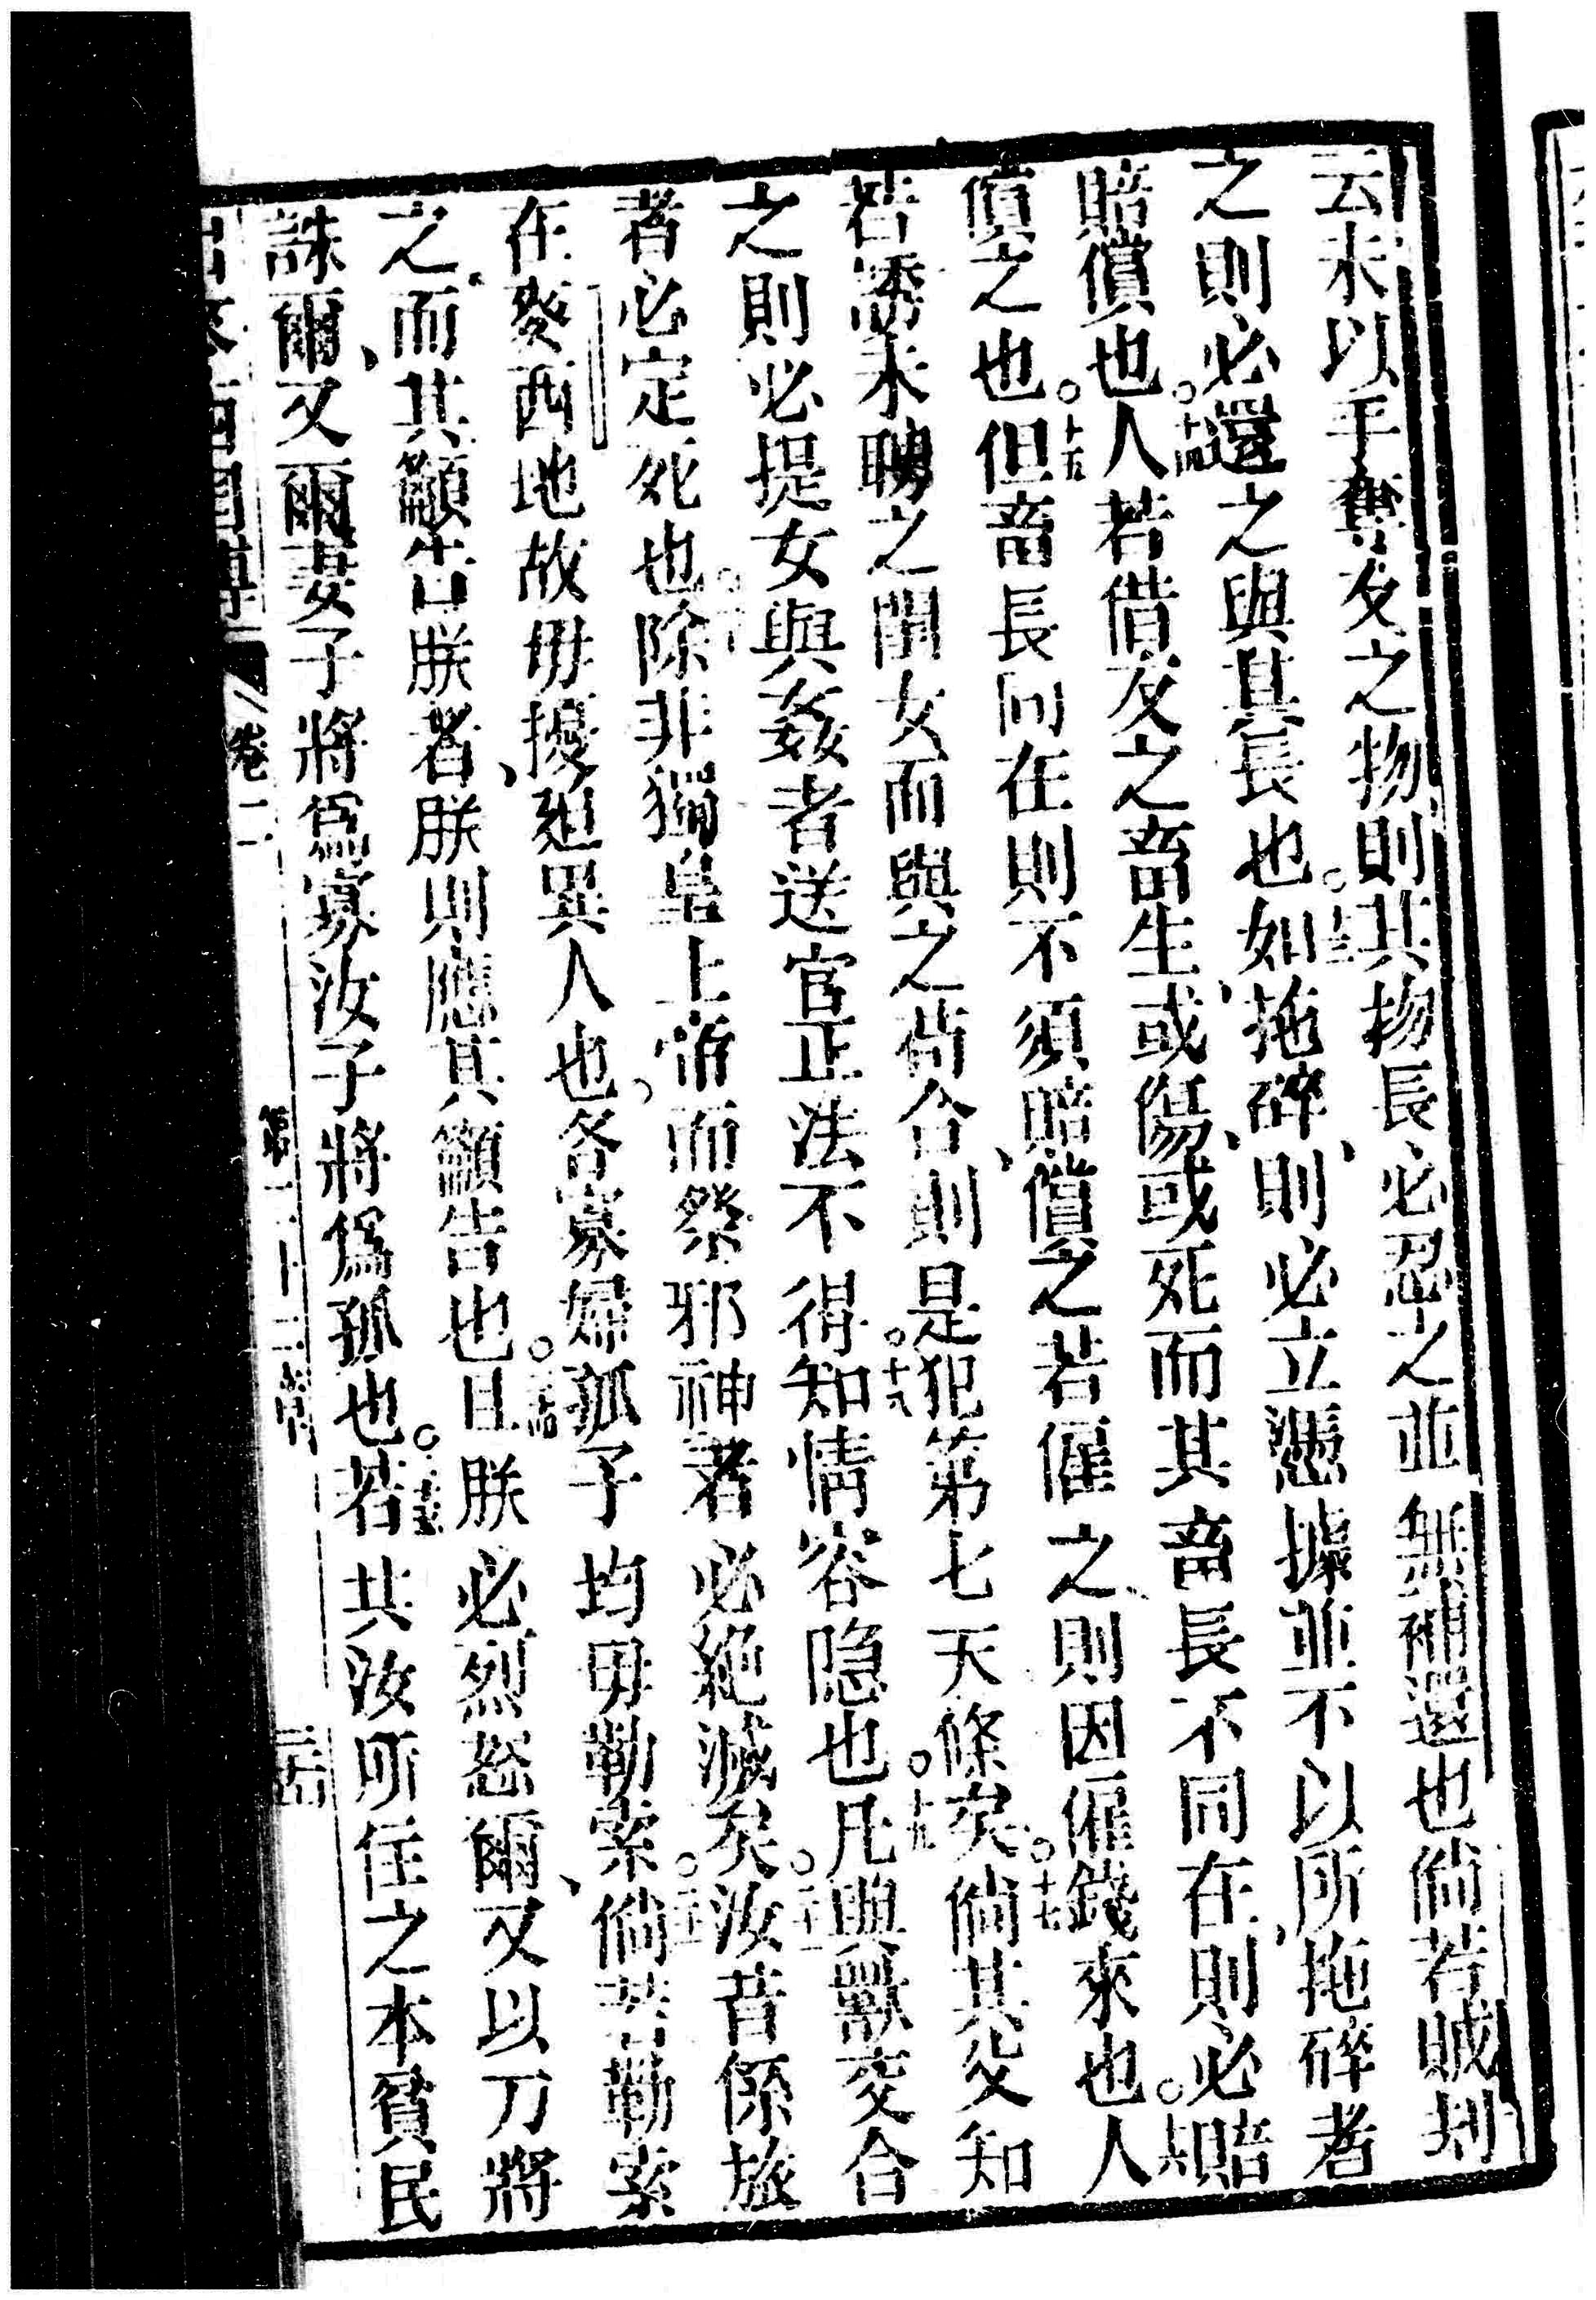 云未以手奪友之物則其物長必忍之並無補還也倘若賊刦
之則必還之與其長也○十三如拖碎則必立憑據並不以所拖碎者
賠償也○十四人若借友之畜生或傷或死而其畜長不同在則必賠
償之也○十五但畜長同在則不須賠償之若僱之則因僱錢來也○十六人
若誘未聘之閨女而與之苟合則是犯第七天條矣○十七倘其父知
之則必提女與姦者送官正法不得○十八知情容隱也○十九凡與獸交合
者必定死也○二十除非獨皇上帝而祭邪神者必絕滅矣○二一汝昔係旅
在麥西地故毋擾廹異人也各寡婦孤子均毋勒索○二二倘若勒索
之而其籲告朕者朕則應其籲告也○二四且朕必烈怒爾又以刀將
誅爾又爾妻子將為寡汝子將為孤也○二五若共汝所住之本貧民
出麥西國傳 卷二 第二十二章 二十五